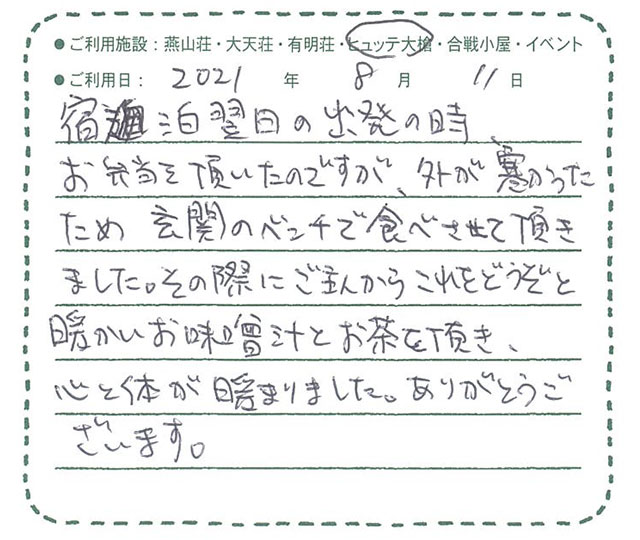 ●ご利用施設：燕山荘・大天荘・有明荘・ヒュッテ大槍・合戦小屋・イベント
●ご利用日： 2021 年 8 月 11 日
宿泊翌日の出発の時、
お弁当を頂いたのですが、外が寒かった
ため 玄関のベンチで食べさせて頂き
ました。その際にご主人からこれをどうぞと
暖かいお味噌汁とお茶を頂き、
心と体が暖まりました。ありがとうご
ざいます。